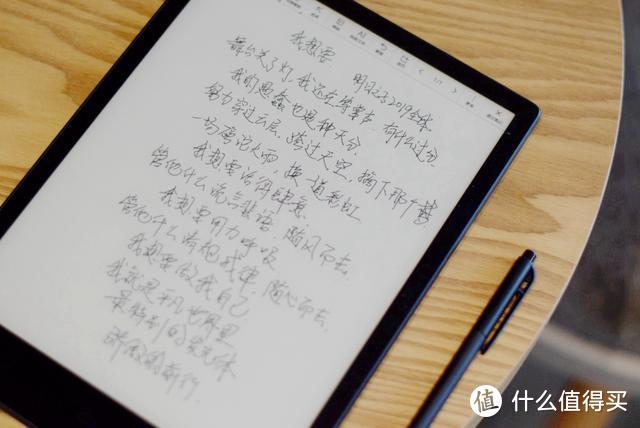 AI
我想要 明日之子2019全球
舞台关了灯,我还在等掌声.有什么过分
我们愚蠢也是种天分.
努力穿过云层,跨过天空,摘下那个梦
一场滂沱大雨,换一道彩虹
我想要活得肆意
管他什么流言蜚语,随风而去.
我想要用力呼吸
管他什么清规戒律,随心而去.
我想要做我自己
我就是平凡世界里
最特别的发光体
骄傲的前行.
值 什么值得买